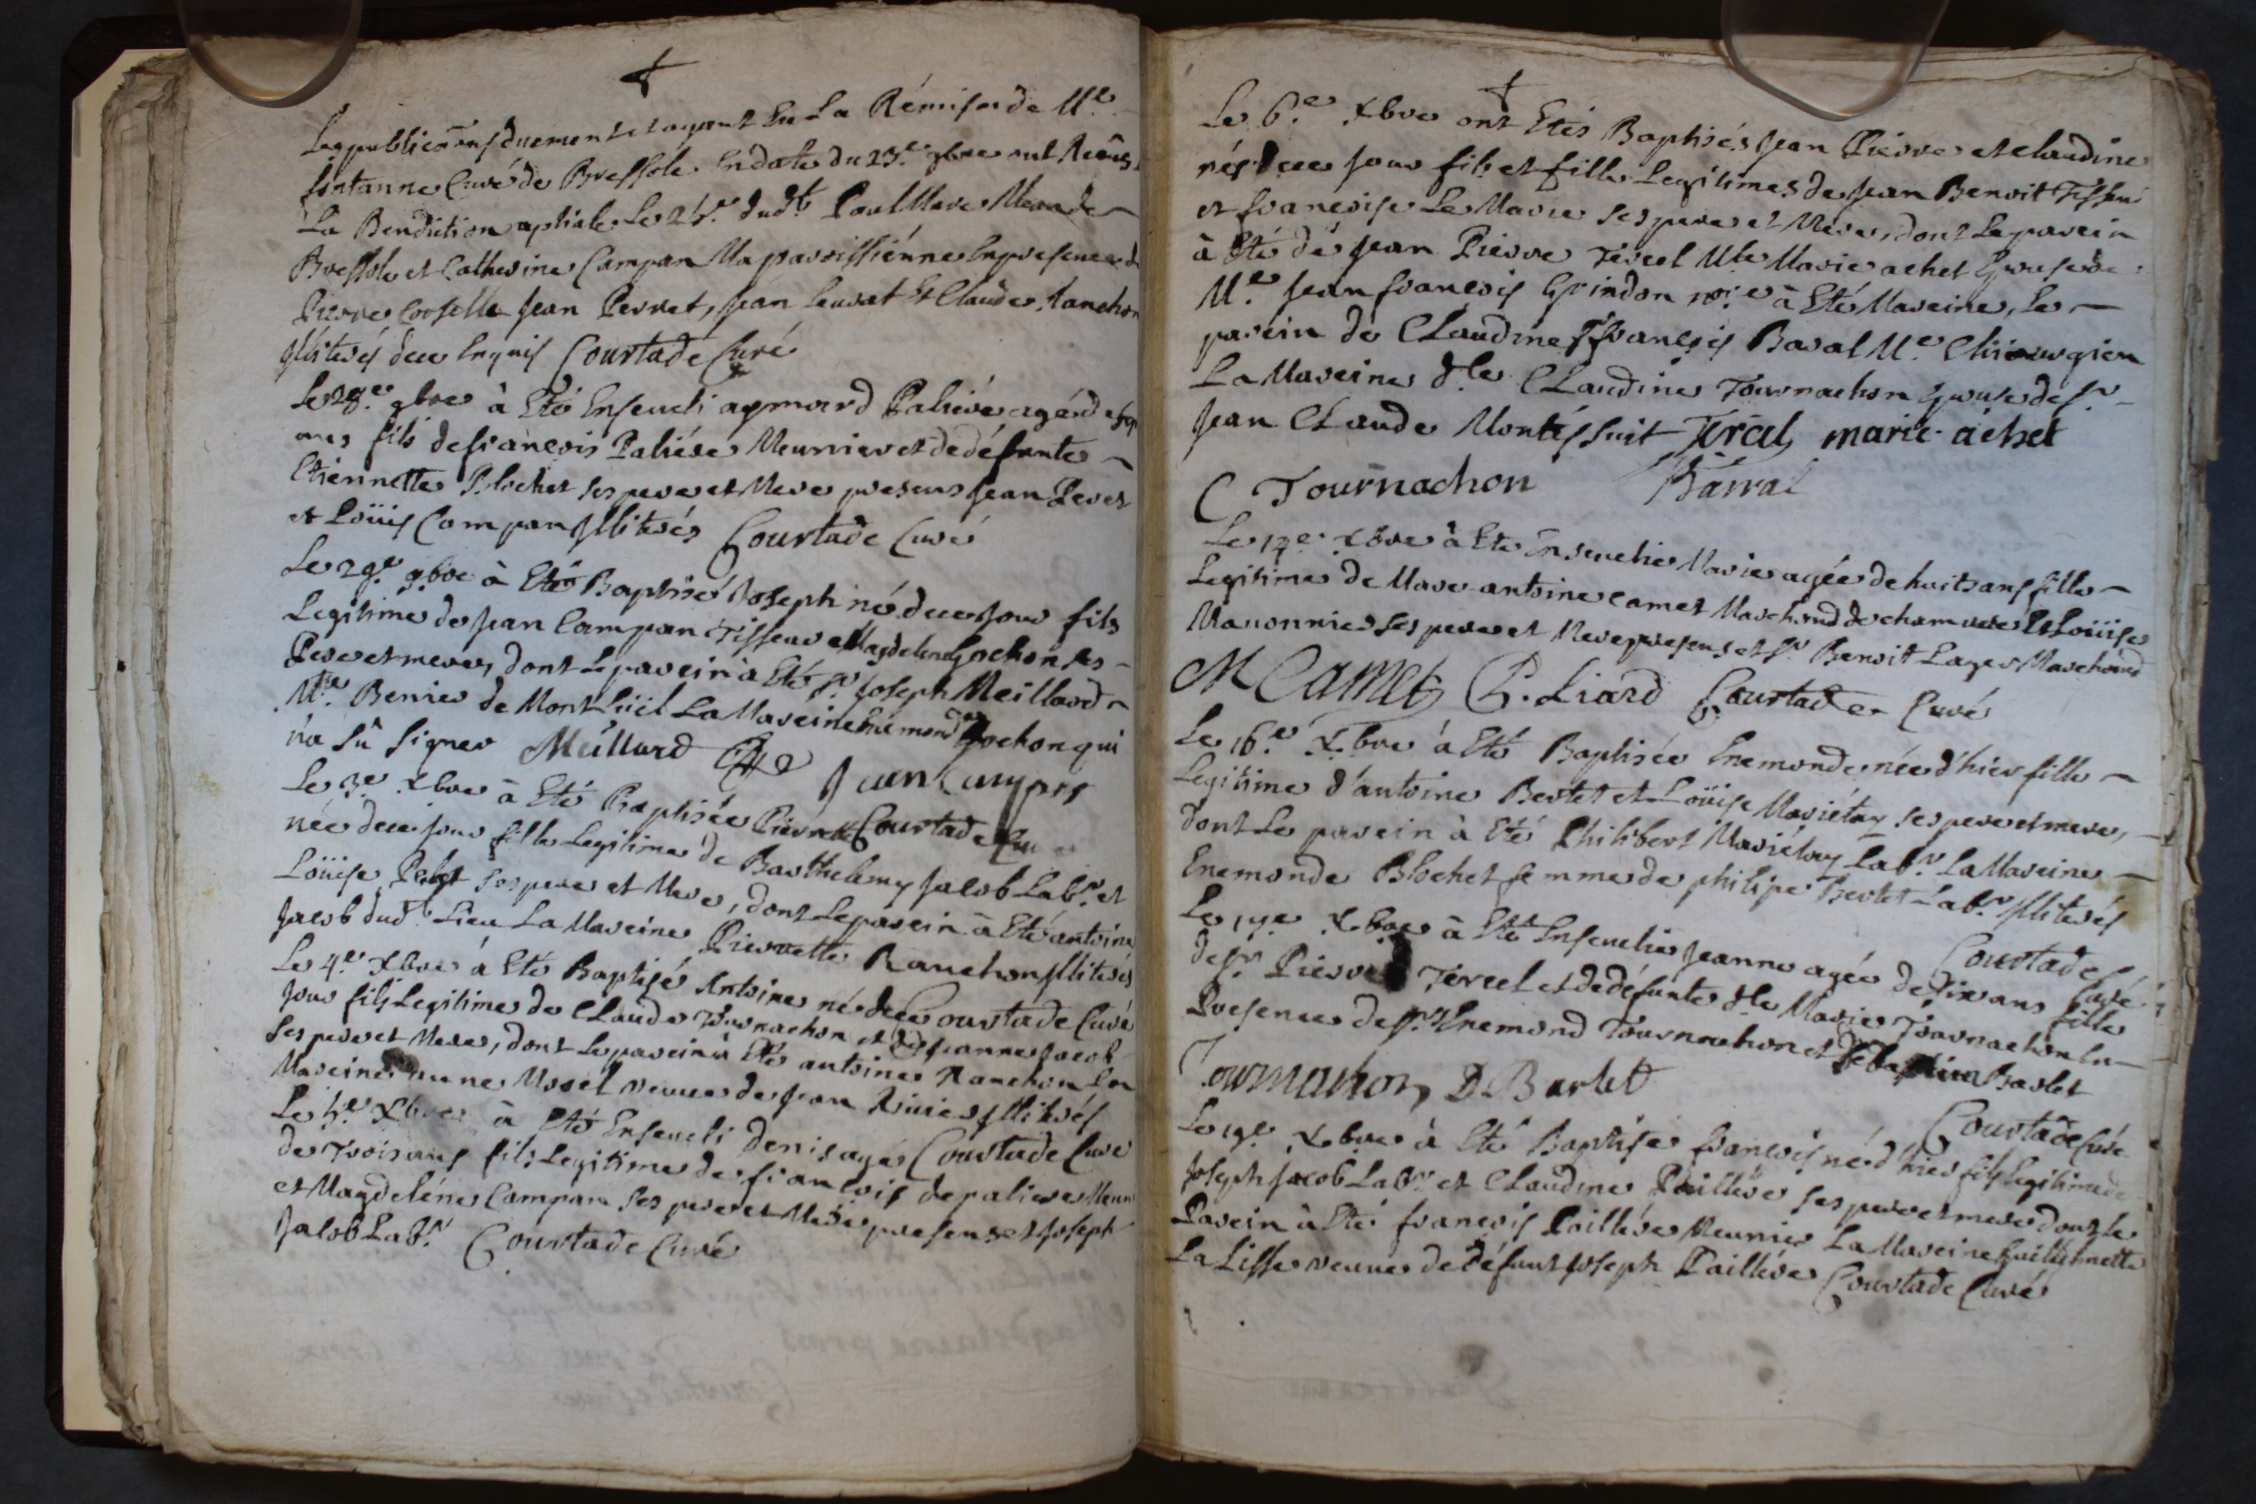 Les publicaõns duement et ayant Eu La Rémise de Mre
fontanne Curé de Bressole En date du 23.e 9bre ont Recûs
La Bendiction nptiale Le 24.e dudt Paul Marc
Bressole et Catherine Campan Ma paroissiénne En presence de
Pierre Jean Perret, Jean Et Claude Ranchon
Illiterés de ce Enquis Courtade Curé
Le 28.e 9bre à Eté Enseveli aymard Paliére agé de
ans fils de françois Paliére Meunier et de défunte
Etiennette Blochet ses pere et Mere presens Jean Peret
et Loüis Campan Illiterés Courtade Curé
Le 29.e 9bre à Eté Baptisé Joseph né de ce Jour fils
Legitime de Jean Campan Tisseur et Magdelene Gochon ses
Pere et mere, dont Le parein à Eté Sr Joseph Meillard
Mre de Montlüel La Mareine Enemonde Gochon qui
n'a Sû Signer Meillard Jean Campan
Courtade Cu
Le 3.e Xbre à Eté Baptisée Pierrette
née de ce Jour fille Legitime de Barthelemy Jacob Labr. et
Loüise ses pere et Mere, dont Le parein à Eté antoine
Jacob dudt Lieu La Mareine Pierrette Ranchon Illiterés
Courtade Curé
Le 4.e Xbre à Eté Baptisé Antoine né de ce
Jour fils Legitime de Claude Tournachon et de Jeanne Jacob
ses pere et Mere, dont Le parein à Eté antoine Ranchon La
Mareine Morel veuve de Jean Illiterés
Courtade Curé
Le 5.e Xbre à Eté Enseveli denis agé
de Trois ans fils Legitime de françois de paliere Meun
et Magdeléne Campan ses pere et Mere presens et Joseph
Jacob Labr. Courtade Curé
Le 6.e Xbre ont Etés Baptisés Jean Pierre et Claudine
nés de ce Jour fils et fille Legitimes de Jean Benoit
et françoise Le Marie ses pere et Mere, dont Le parein
à Eté de Jean Pierre Tercel Mlle Marie achet Epouse de
Mre Jean françois Grindon à Eté Mareine, Le
parein de Claudine françois Baral Mre Chirurgien
La Mareine dlle Claudine Tournachon Epouse de Sr
Jean Claude Montessuit Tercel marie achet
C Tournachon Barral
Le 12e Xbre à Eté Ensevelie Marie agée de huit ans fille
Legitime de Marc antoine Camet Marchand de chamvre Et Loüise
Maronnier ses pere et Mere presens et Sr Benoit Marchand
M Camet Liard Courtade Curé
Le 16.e Xbre à Eté Baptisée Enemonde née d'hier fille
Legitime d'antoine Bertet et Loüise Mariétay ses pere et mere,
dont Le parein à Eté Philibert Mariétay Labr. La Mareine
Enemonde Blochet femme de philipe Bertet Labr. Illiterés
Courtade Curé
Le Xbre à Eté Ensevelie Jeanne agée de six ans fille
de Sr Pierre Tercel et de défunte dlle Marie Tournachon En
Presence de Sr Enemond Tournachon et de Barlet
Tournachon D Barlet
Courtade Curé
Le 19e Xbre à Eté Baptise françois né d'hier fils Legitime de
Joseph Jacob Labr. et Claudine Paillére ses pere et mere dont Le
Parein à Eté françois Paillére Meunier La Mareine Guillemette
La Lisse veuve de défunt Joseph Paillére Courtade Curé